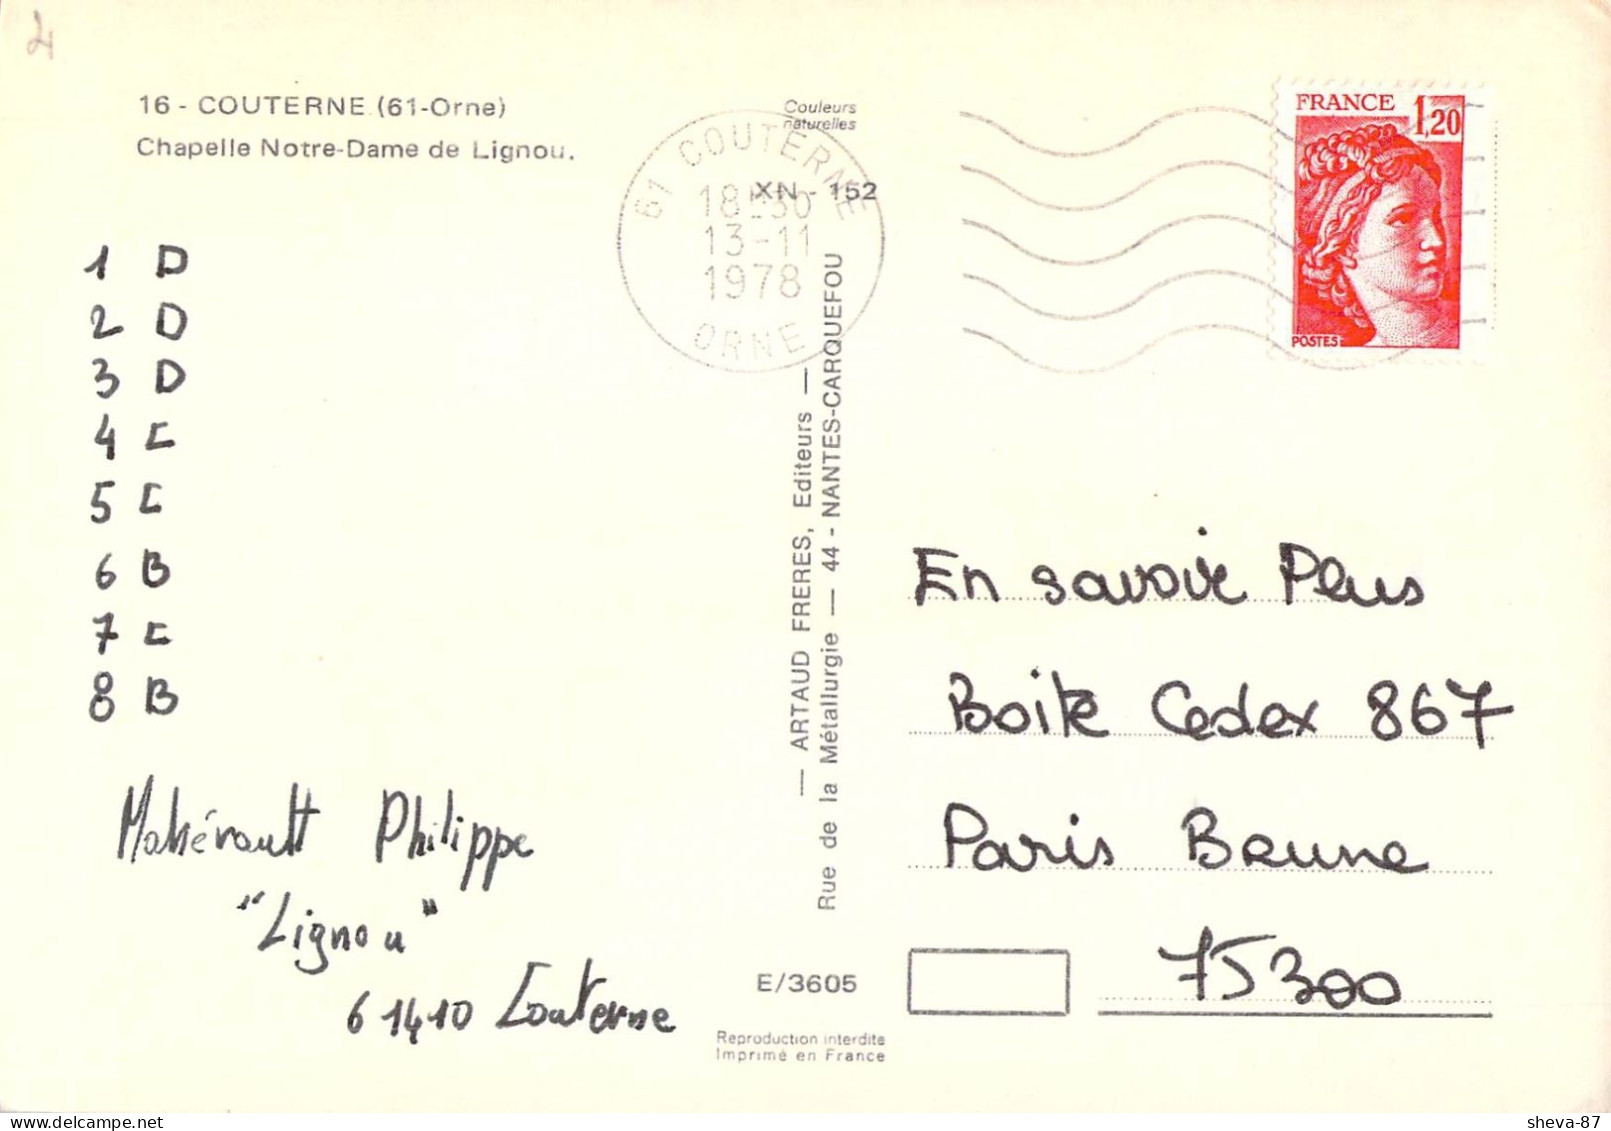 4
16 - COUTERNE (61-Orne)
Chapelle Notre-Dame de Lignou.
Couleurs
naturelles
XN - 152
61 COUTERNE
18H30
13-11
1978
ORNE
FRANCE 1,20
POSTES
1 D
2 D
3 D
4 C
5 C
6 B
7 C
8 B
Philippe
"Lignou"
61410 Couterne
— ARTAUD FRERES, Editeurs —
Rue de la Métallurgie — 44 - NANTES-CARQUEFOU
E/3605
Reproduction interdite
Imprimé en France
En savoir Plus
Boite Cedex 867
Paris Brune
75300
sheva-87